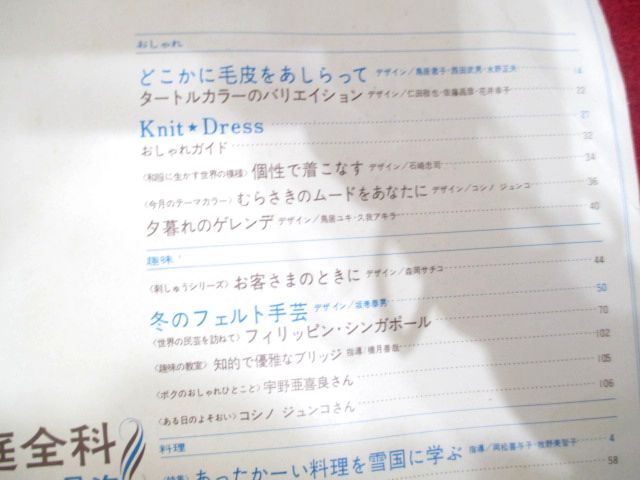 おしゃれ
どこかに毛皮をあしらって デザイン/鳥居君子・西田武男・水野正夫 14
タートルカラーのバリエイション デザイン/仁田雅也・佐藤昌彦・花井幸子 22
Knit★Dress 27
おしゃれガイド 32
〈和服に生かす世界の模様〉個性で着こなす デザイン/石崎忠司 34
〈今月のテーマカラー〉むらさきのムードをあなたに デザイン/コシノ ジュンコ 36
夕暮れのゲレンデ デザイン/鳥居ユキ・久我アキラ 40
趣味
〈刺しゅうシリーズ〉お客さまのときに デザイン/森岡サチコ 44
冬のフェルト手芸 デザイン/坂巻泰男 50
〈世界の民芸を訪ねて〉フィリッピン・シンガポール 70
〈趣味の教室〉知的で優雅なブリッジ 指導/横月善哉 102
〈ボクのおしゃれひとこと〉宇野亜喜良さん 105
〈ある日のよそおい〉コシノ ジュンコさん 106
庭全科
料理
あったかーい料理を雪国に学ぶ 指導/岡松喜与子・牧野美智子 4
58